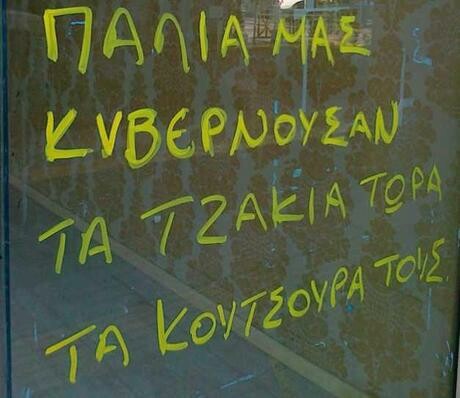 ΠΑΛΙΑ ΜΑΣ
ΚΥΒΕΡΝΟΥΣΑΝ
ΤΑ ΤΖΑΚΙΑ ΤΩΡΑ
ΤΑ ΚΟΥΤΣΟΥΡΑ ΤΟΥΣ.